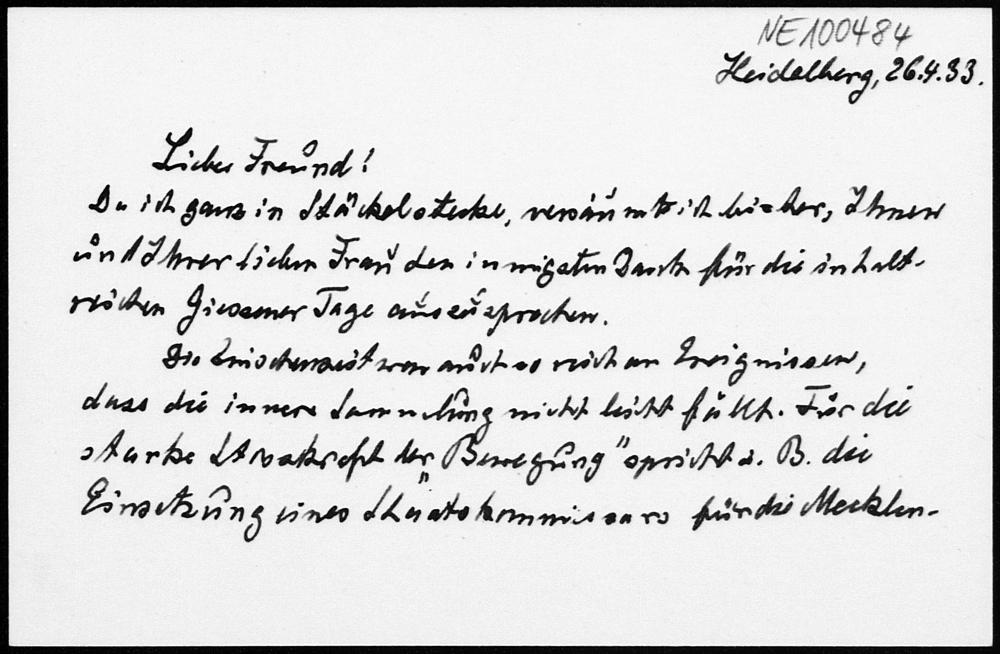 NE100484
Heidelberg, 26.4.33.
Lieber Freund!
Da ich ganz in Stäckel stecke, versäumte ich bisher, Ihnen
und Ihrer lieben Frau den innigsten Dank für die inhalt-
reichen Giessener Tage auszusprechen.
Die Zwischenzeit war auch so reich an Ereignissen,
dass die innere Sammlung nicht leicht fällt. Für die
starke Stosskraft der „Bewegung" spricht z. B. die
Einsetzung eines Staatskommissars für die Mecklen-